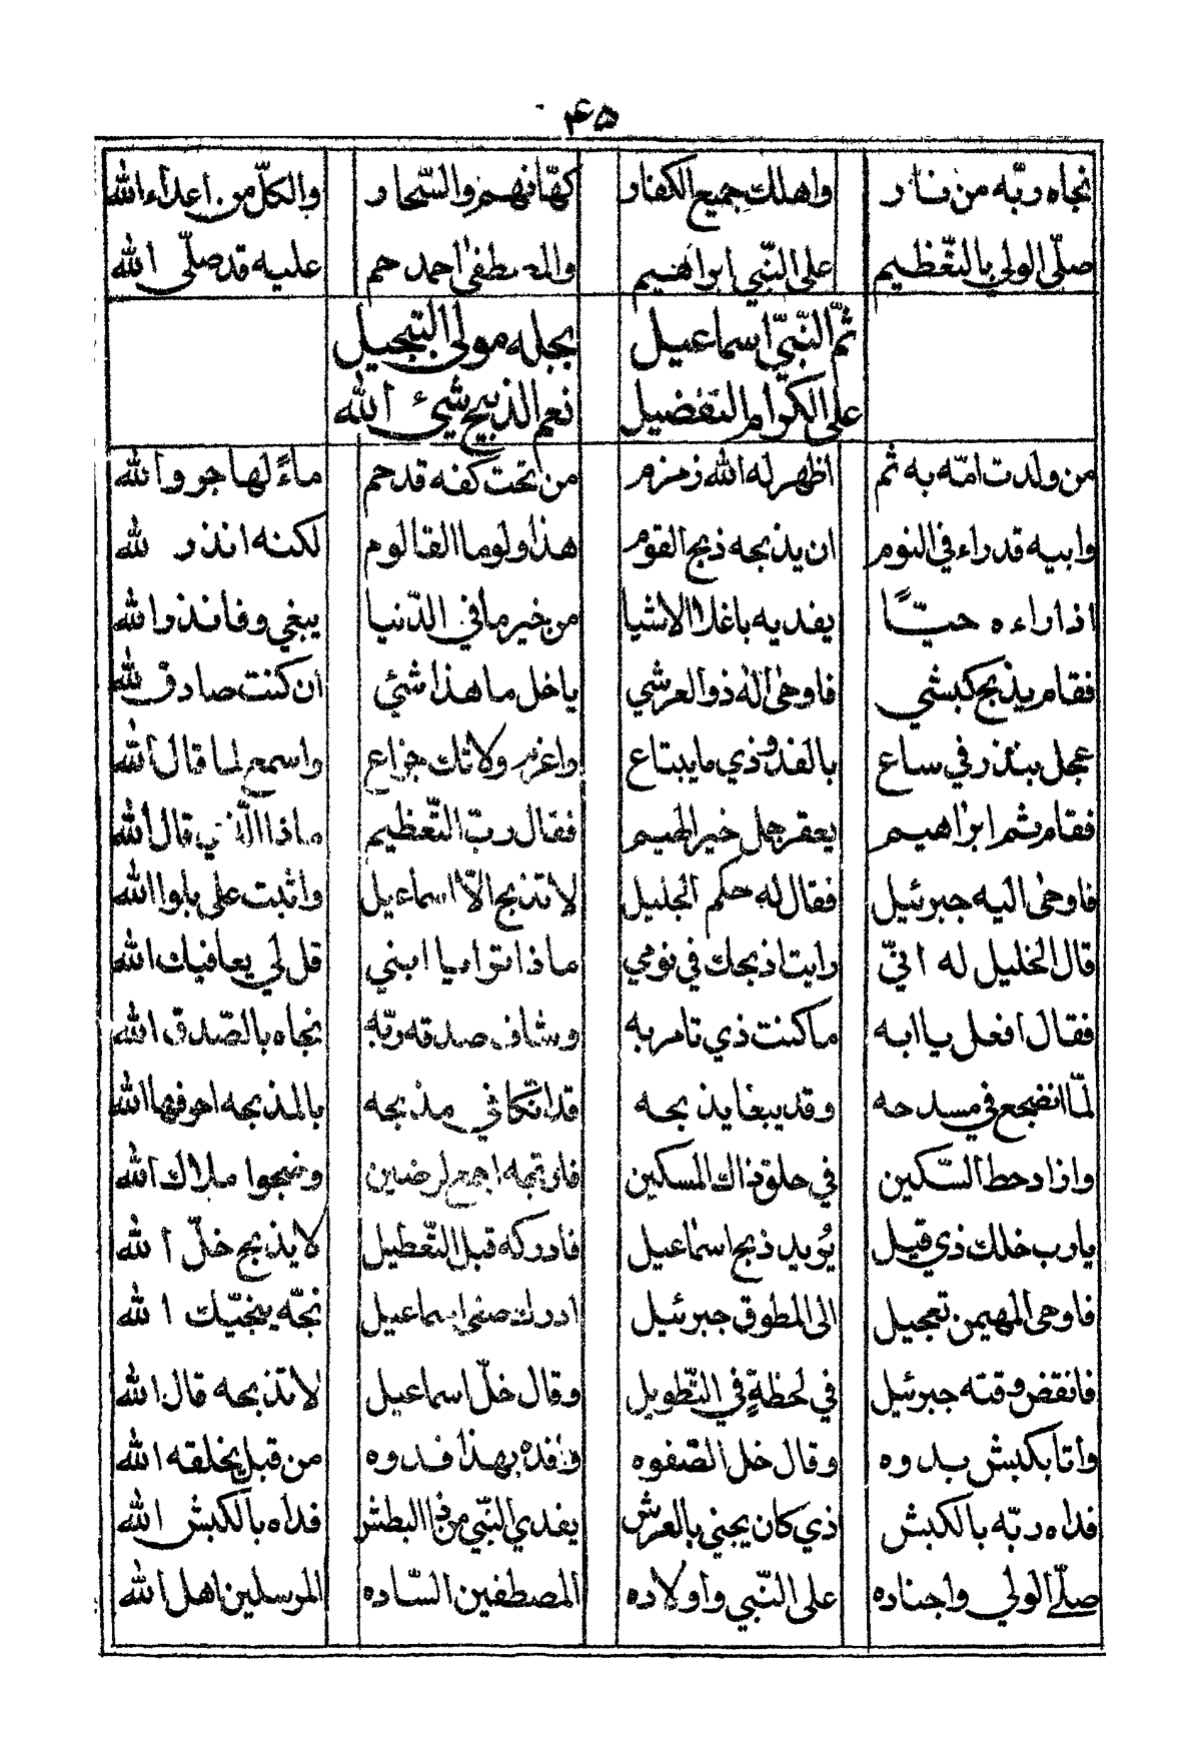 ۴۵
نجاه ربّه من نار واهلك جميع الكفار كهّانهم والسّحار والكلّ من اعداء الله
صلّى الولي بالتّعظيم على النّبي ابراهيم والمصطفى احمد حم عليه قد صلّى الله
ثمّ النّبيّ اسماعيل بجله مولى التّبجيل
على الكرام التفضيل نعم الذبيح شيئ الله
من ولدت امّه به ثم اظهر له الله زمزم من تحت كفه قد حم ماءً لهاجر والله
وابيه قد راء في النوم ان يذبحه ذبح القوم هذا ولوما القالوم لكنه انذر لله
اذا راءه حيّاً يفديه باغلا الاشيا من خير ما في الدّنيا يبغي وفا نذر الله
فقام يذبح كبشي فاوحى اله ذو العرشي ياخل ما هذا شئي ان كنت صادق لله
عجل بنذر في ساع بالفدو ذي ما يبتاع واعزم ولا تك جزاع واسمع لما قال الله
فقام ثم ابراهيم يعقر جمل خير الهيم فقال ربّ التّعظيم ماذا الّذي قال الله
فاوحى اليه جبرئيل فقال له حكم الجليل لا تذبح الّا اسماعيل واثبت على بلوا الله
قال الخليل له انيّ رايت اذبحك في نومي ماذا ترا يا ابني قل لي يعافيك الله
فقال افعل يا ابه ما كنت ذي تامر به وشاف صدقه ربّه نجاه بالصّدق الله
لمّا انضجع في مسدحه وقد يبغا يذبحه قد اتّكا في مذبحه بالمذبحه
واذا دحط السّكين في حلق ذاك المسكين فارتجه اجمع لرضين وضجوا ملاك الله
يا رب خلك ذي قيل يُريد ذبح اسماعيل فادركه قبل التّعطيل لا يذبح خلّ الله
فاوحى المهيمن تعجيل الى المطوق جبرئيل ادرك صفي اسماعيل نجّه ينجّيك الله
فانقض وقته جبرئيل في لحظةٍ في التّطويل وقال خلّ اسماعيل لا تذبحه قال الله
واتا بكبش بدوه وقال خل الصّفوه وافده بهذا فدوه من قبل يخلقه الله
فداه ربّه بالكبش ذي كان يجني بالعرش يفدي النّبي من ذا البطش فداه بالكبش الله
صلّى الولي واجناده على النّبي واولاده المصطفين السّاده المرسلين اهل الله